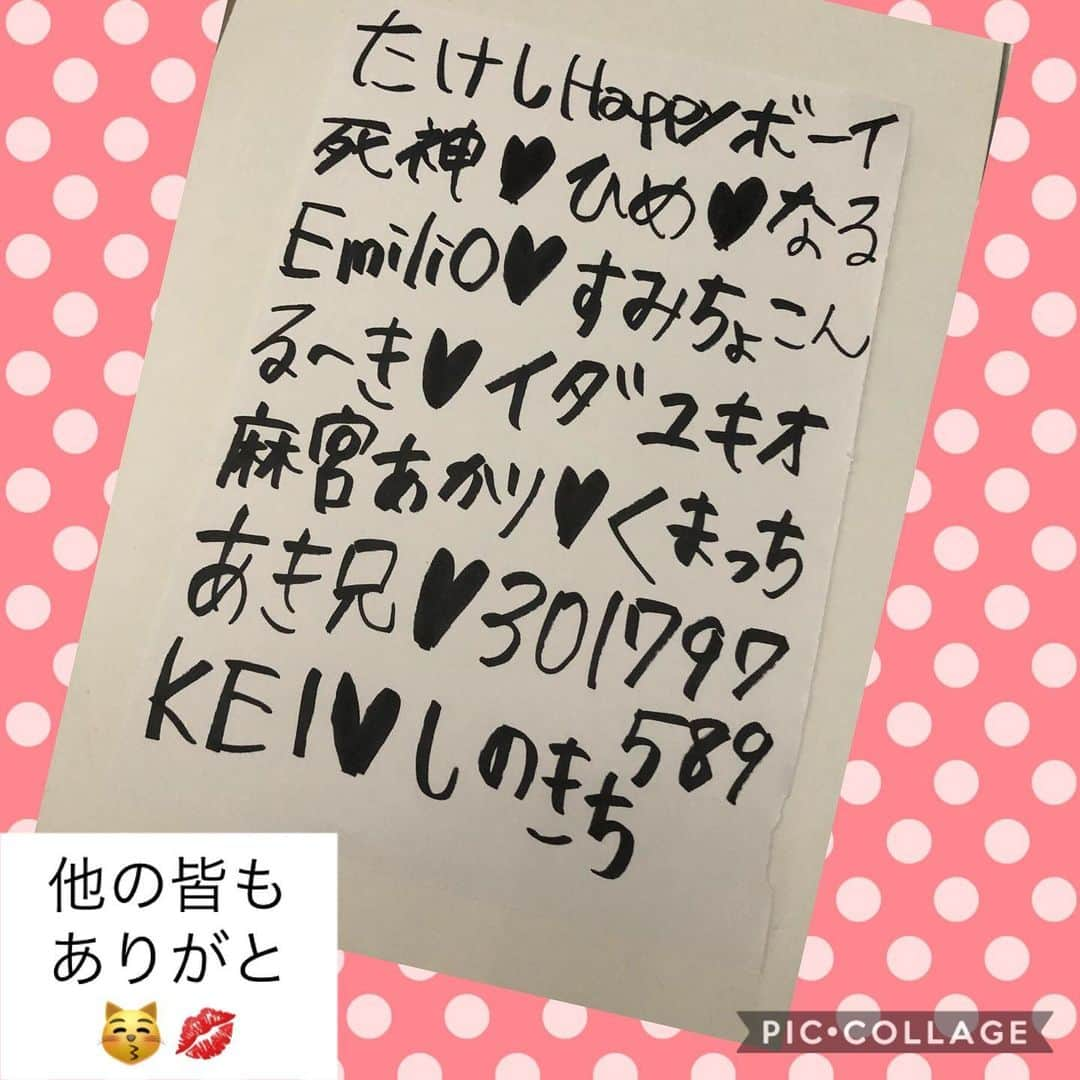 たけしHappyボーイ
死神♥ひめ♥なる
Emilio♥すみちょこん
るへき♥イダユキオ
麻宮あかり♥くまっち
あき兄♥301797
589
KEI♥しのきち
他の皆も
ありがと
😽💋
PIC•COLLAGE